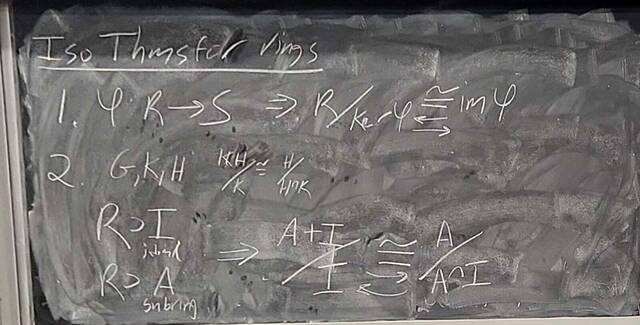 Iso Thms for rings
1. φ: R → S ⇒ R/ker φ ≅ im φ ⇆
2. G, K, H KH/K ≅ H/H∩K
R ⊃ I ideal
R ⊃ A subring
⇒ A+I/I ≅ A/A∩I ⇆